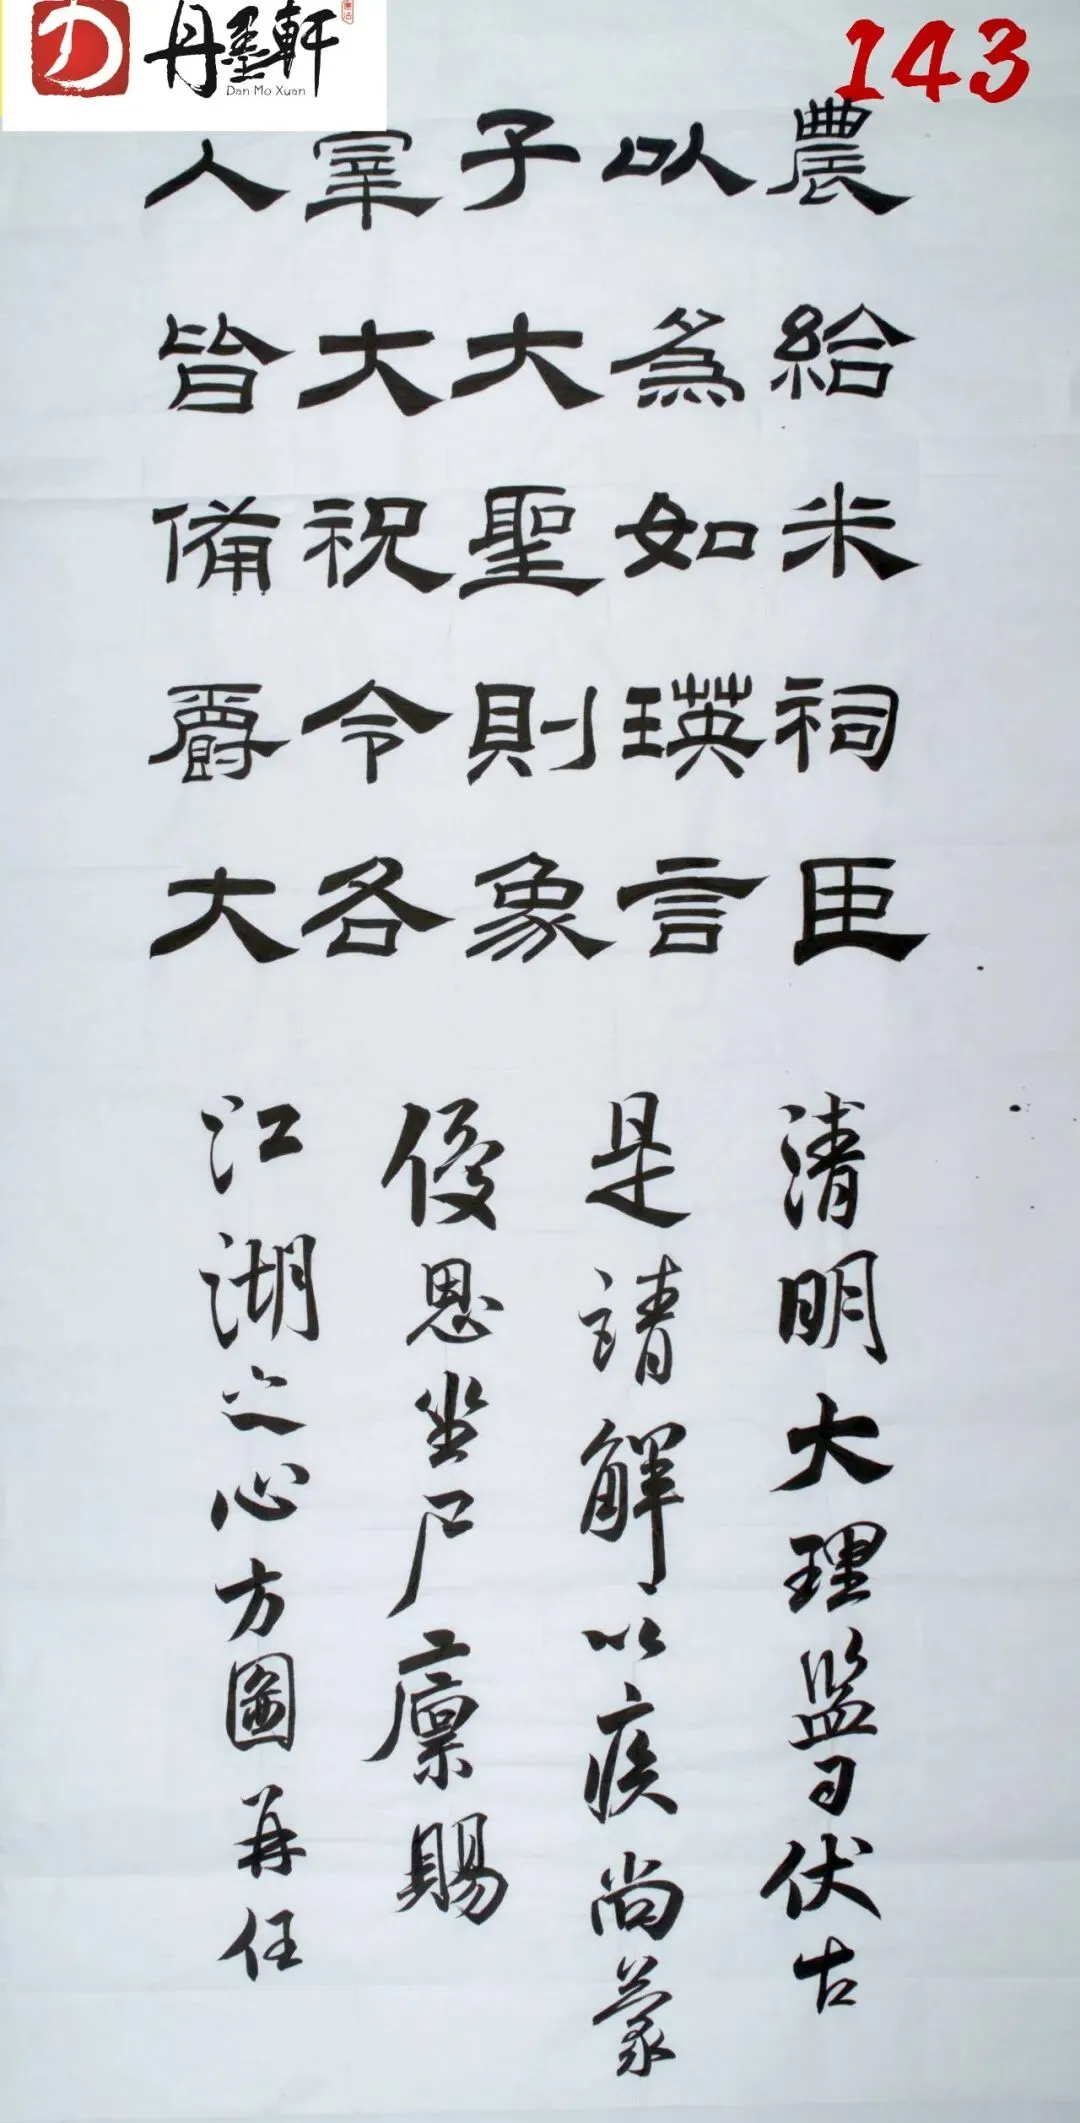 丹墨軒
Dan Mo Xuan
143
農給米祠臣
以為如瑛言
子大聖則象
宰大祝令各
人皆備爵大
清明大理監伏古
是請解以疾尚蒙
優恩坐尸廩賜
江湖之心方圖再任